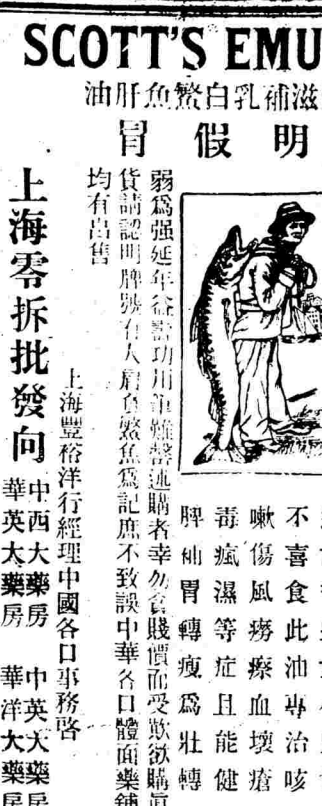 SCOTT'S EMU
滋補乳白鰵魚肝油
明假冒
不喜食此油專治咳
嗽傷風癆瘵血壞瘡
毒瘋濕等症且能健
脾補胃轉瘦爲壯轉
弱爲强延年益壽功用筆難罄述購者幸勿貪賤價而受欺欲購眞
貨請認明牌號有人肩負鰵魚爲記庶不致誤中華各口體面藥鋪
均有出售
上海豐裕洋行經理中國各口事務啓
上海零拆批發向
中西大藥房 中英大藥房
華英大藥房 華洋大藥房